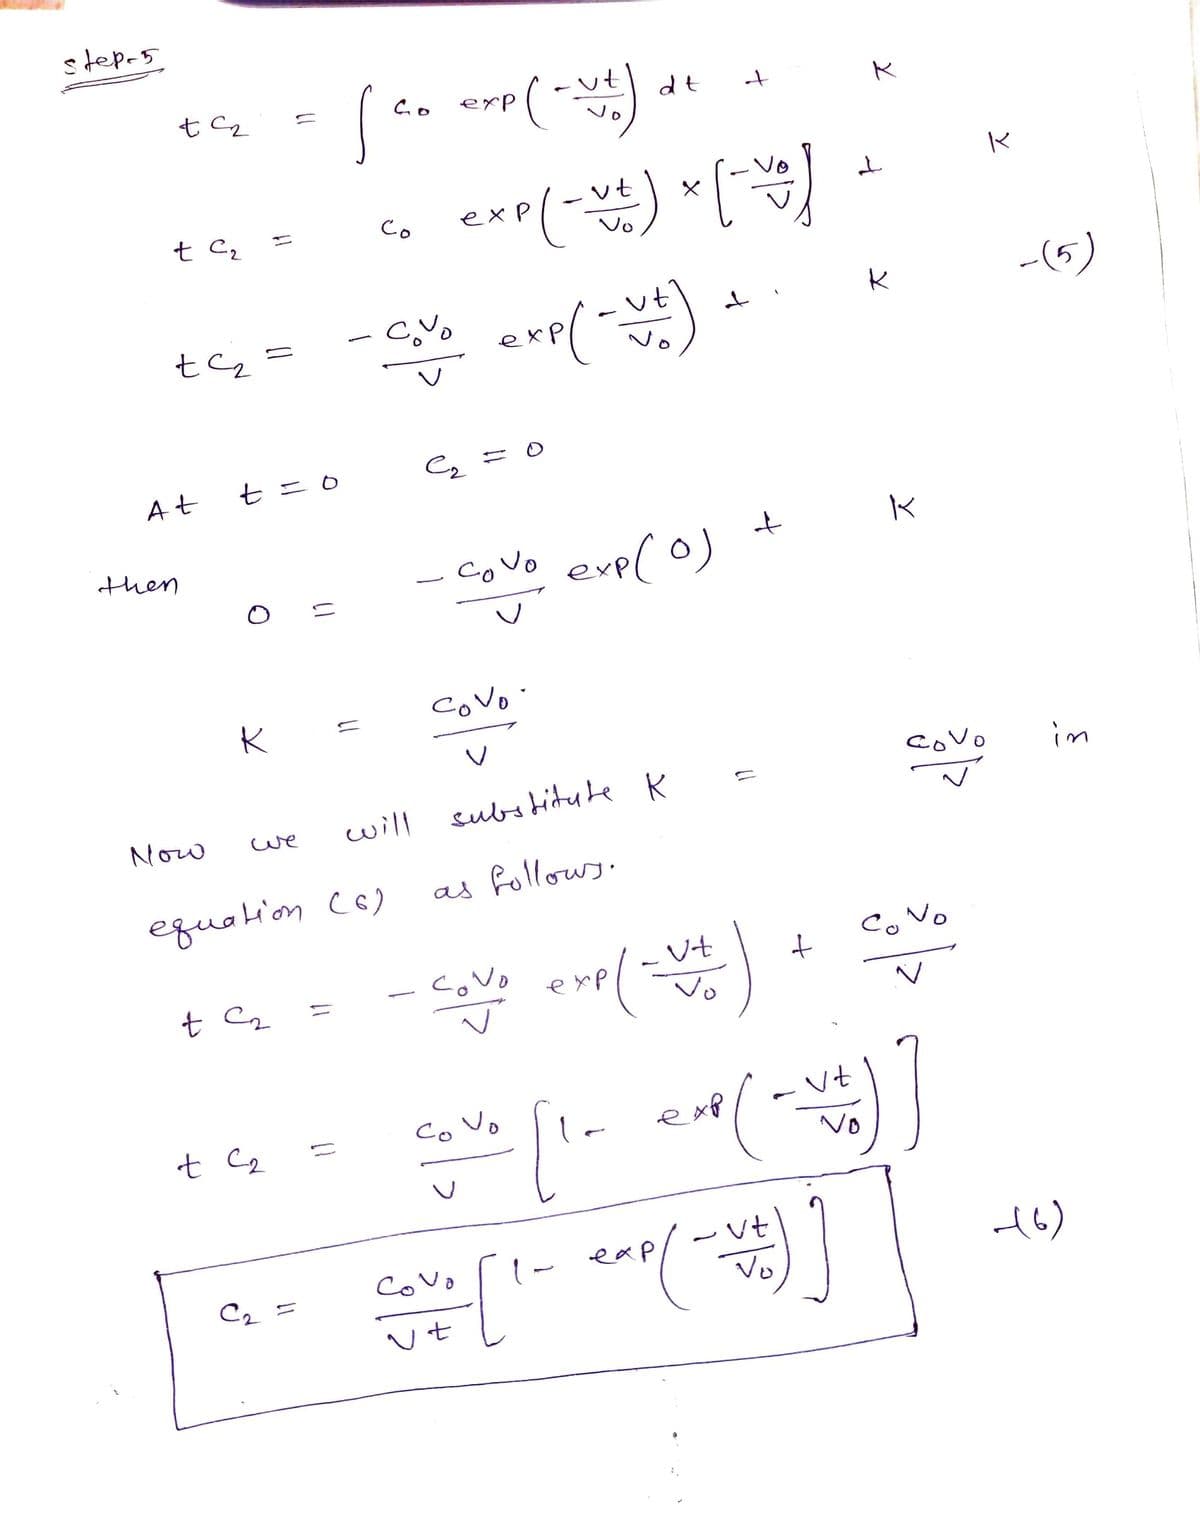 step-5
t C₂ = ∫ C₀ exp(-vt/V₀) dt + K
t C₂ = C₀ exp(-vt/V₀) × [-V₀/v] + K
t C₂ = -C₀V₀/v exp(-vt/V₀) + K -(5)
At t = 0 C₂ = 0
then
0 = -C₀V₀/v exp(0) + K
K = C₀V₀/v
Now we will substitute K = C₀V₀/v in
equation (6) as follows.
t C₂ = -C₀V₀/v exp(-vt/V₀) + C₀V₀/v
t C₂ = C₀V₀/v [1- exp(-vt/V₀)]
C₂ = C₀V₀/vt [1- exp(-vt/V₀)] -(6)